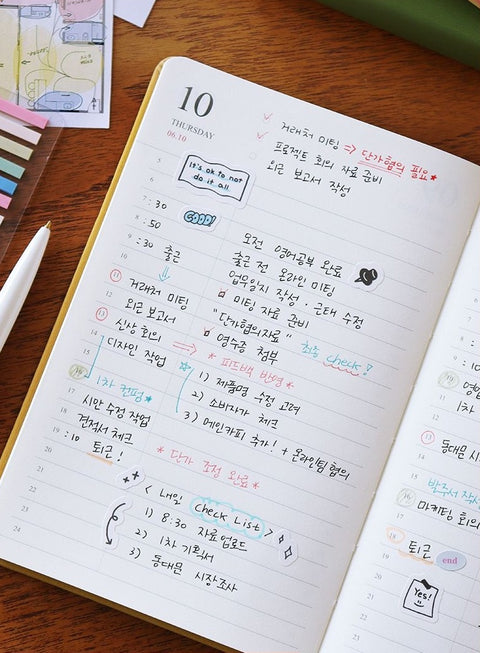 10
THURSDAY
06.10
거래처 미팅 => 단가협의 필요★
프로젝트 회의 자료 준비
외근 보고서 작성
5
It's ok to not
do it all
6
7 : 30
GOOD!
8 : 50
오전 영어공부 완료
9 : 30 출근
출근 전 온라인 미팅
10
업무일지 작성 · 근태 수정
11
거래처 미팅
미팅 자료 준비
12
외근 보고서
"단가협의자료"
13
신상 회의
영수증 첨부
최종 check!
14
디자인 작업
* 피드백 반영 *
15
1) 제품명 수정 고려
16
1차 컨펌*
2) 소비자가 체크
17
시안 수정 작업
3) 메인카피 추가! + 온라인팀 협의
18
견적서 체크
19 : 10 퇴근!
* 단가 조정 완료 *
20
21
< 내일 Check List >
22
1) 8:30 자료업로드
23
2) 1차 기획서
24
3) 동대문 시장조사
5
6
7 :
8 :
9 : 1
10
11
1차
12
13
동대문 시
14
15
발주서 작성
16
마케팅 회의
17
18
퇴근
end
19
20
Yes!
21
22
23
24